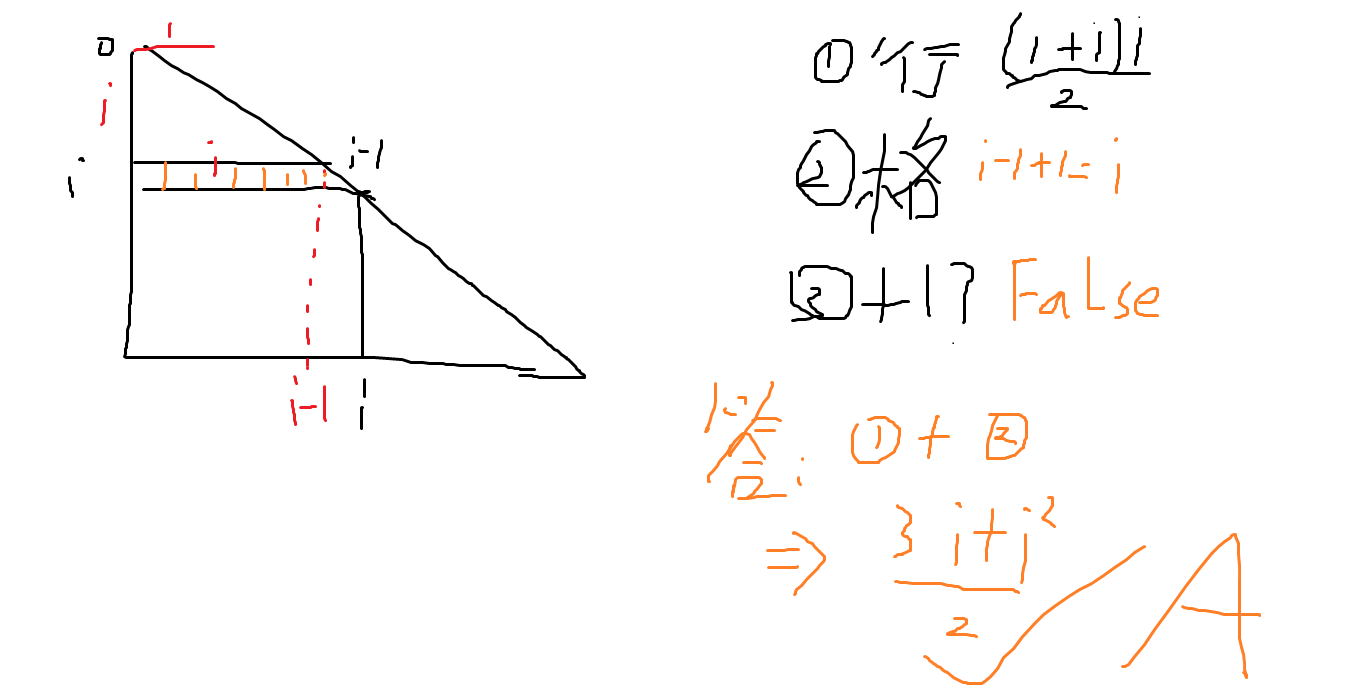 0
1
i
i
i
i-1
i-1
i
① 行 (1+i)i/2
② 格 i-1+1=i
③ +1? False
答: ① + ②
⇒ 3i+i²/2
A